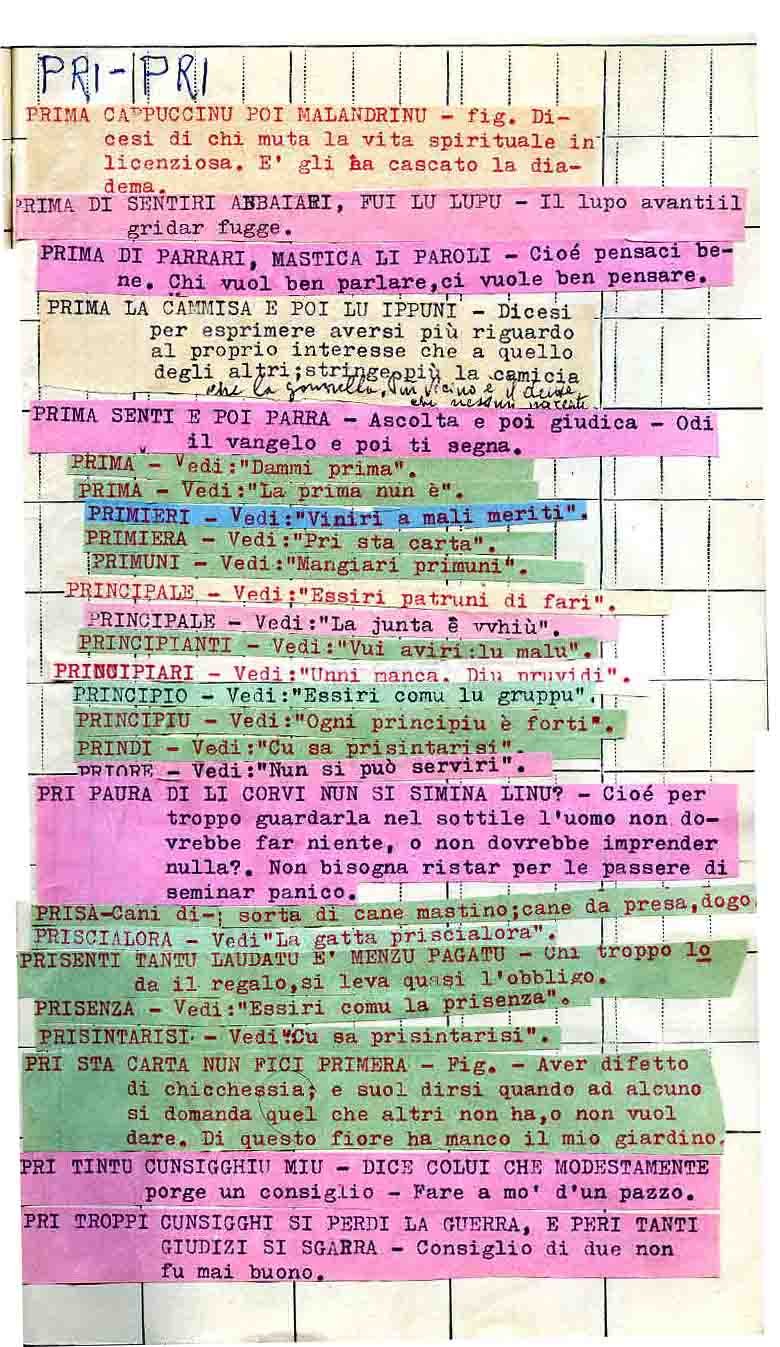 PRI-PRI
PRIMA CAPPUCCINU POI MALANDRINU - fig. Di-
cesi di chi muta la vita spirituale in
licenziosa. E' gli ha cascato la dia-
dema.
PRIMA DI SENTIRI ABBAIARI, FUI LU LUPU - Il lupo avantiil
gridar fugge.
PRIMA DI PARRARI, MASTICA LI PAROLI - Cioé pensaci be-
ne. Chi vuol ben parlare,ci vuole ben pensare.
PRIMA LA CAMMISA E POI LU IPPUNI - Dicesi
per esprimere aversi più riguardo
al proprio interesse che a quello
degli altri;stringe più la camicia
che la gonnella. più vicino è il dente
che nessun parente
PRIMA SENTI E POI PARRA - Ascolta e poi giudica - Odi
il vangelo e poi ti segna.
PRIMA - Vedi:"Dammi prima".
PRIMA - Vedi:"La prima nun è".
PRIMIERI - Vedi:"Viniri a mali meriti".
PRIMIERA - Vedi:"Pri sta carta".
PRIMUNI - Vedi:"Mangiari primuni".
PRINCIPALE - Vedi:"Essiri patruni di fari".
PRINCIPALE - Vedi:"La junta è vvhiù".
PRINCIPIANTI - Vedi:"Vui aviri:lu malu".
PRINCIPIARI - Vedi:"Unni manca. Diu pruvidi".
PRINCIPIO - Vedi:"Essiri comu lu gruppu".
PRINCIPIU - Vedi:"Ogni principiu è forti".
PRINDI - Vedi:"Cu sa prisintarisi".
PRIORE - Vedi:"Nun si può serviri".
PRI PAURA DI LI CORVI NUN SI SIMINA LINU? - Cioé per
troppo guardarla nel sottile l'uomo non do-
vrebbe far niente, o non dovrebbe imprender
nulla?. Non bisogna ristar per le passere di
seminar panico.
PRISA-Cani di-; sorta di cane mastino;cane da presa,dogo
PRISCIALORA - Vedi"La gatta priscialora".
PRISENTI TANTU LAUDATU E' MENZU PAGATU - Chi troppo lo
da il regalo,si leva quasi l'obbligo.
PRISENZA - Vedi:"Essiri comu la prisenza".
PRISINTARISI - Vedi"Cu sa prisintarisi".
PRI STA CARTA NUN FICI PRIMERA - Fig. - Aver difetto
di chicchessia; e suol dirsi quando ad alcuno
si domanda quel che altri non ha,o non vuol
dare. Di questo fiore ha manco il mio giardino.
PRI TINTU CUNSIGGHIU MIU - DICE COLUI CHE MODESTAMENTE
porge un consiglio - Fare a mo' d'un pazzo.
PRI TROPPI CUNSIGGHI SI PERDI LA GUERRA, E PERI TANTI
GIUDIZI SI SGARRA - Consiglio di due non
fu mai buono.